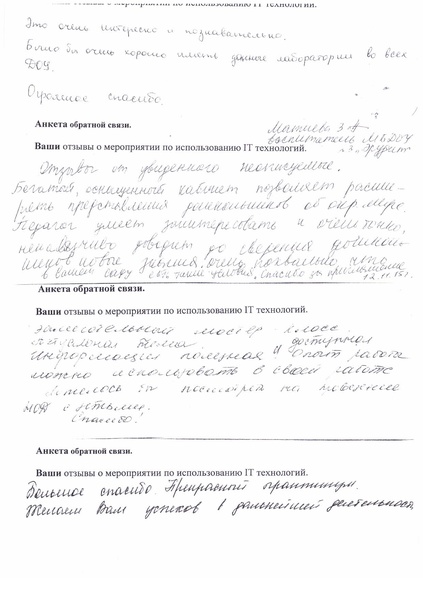 отзывы о мероприятии по использованию IT технологий.
Это очень интересно и познавательно.
Было бы очень хорошо иметь данные лаборатории во всех
ДОУ.
Огромное спасибо.
Анкета обратной связи.
воспитатель МБДОУ
Ваши отзывы о мероприятии по использованию IT технологий.
Отзывы от увиденного неописуемые.
Богатый, оснащенный кабинет позволяет расши-
рять представления дошкольников об окр. мире.
Педагог умеет заинтересовать и очень тонко,
ненавязчиво доводит до сведения дошколь-
ников новые знания. Очень похвально, что
в вашем саду есть такие условия, спасибо за приглашение
12.11.15г.
Анкета обратной связи.
Ваши отзывы о мероприятии по использованию IT технологий.
Замечательный мастер-класс.
Актуальная тема. доступная
Информация полезная и Опыт работы
можно использовать в своей работе
Хотелось бы посмотреть на
НОД с детьми.
Спасибо!
Анкета обратной связи.
Ваши отзывы о мероприятии по использованию IT технологий.
Большое спасибо. Прекрасный практикум.
Желаем Вам успехов в дальнейшей деятельности.